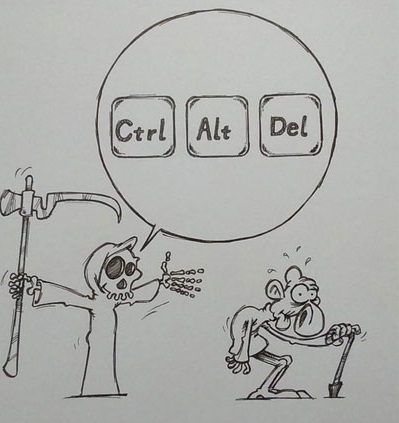 Ctrl Alt Del